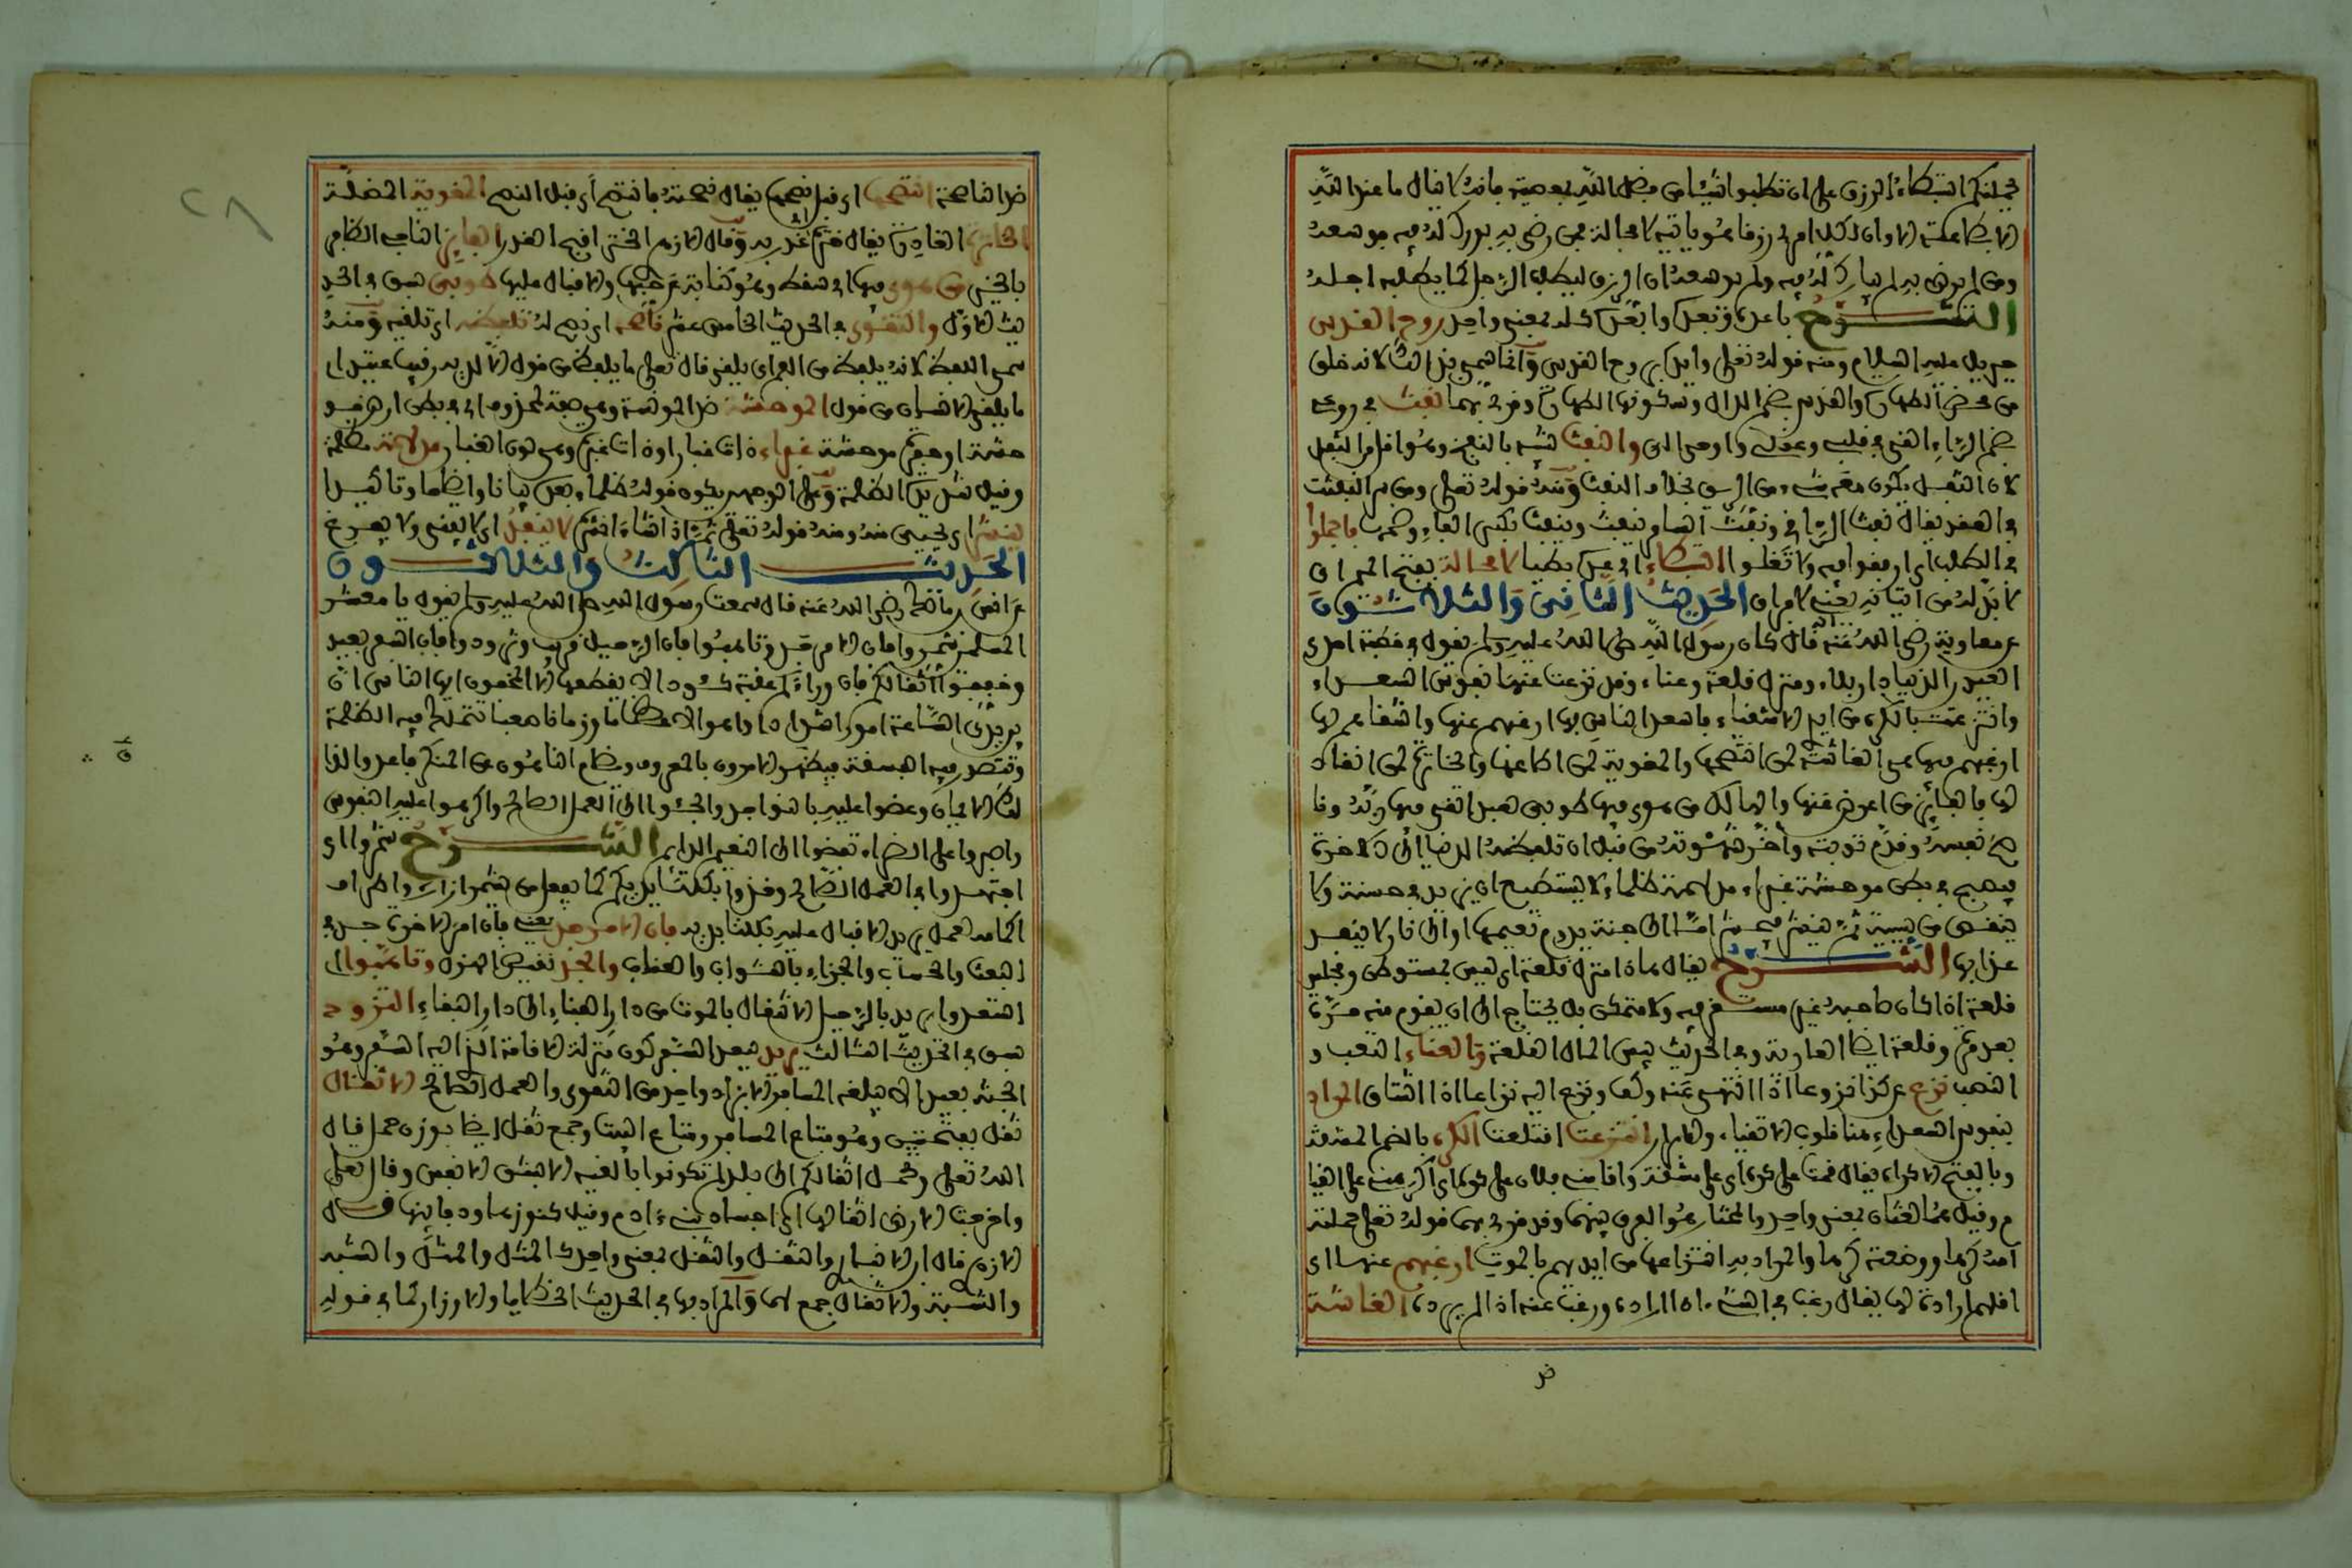 يحملنكم استبطاء الرزق على ان تطلبوا شيئا من فضل الله بمعصيته فانه لا ينال ما عند الله
الا بطاعته الا وان لكل امرئ رزقا هو ياتيه لا محالة فمن رضي به بورك له فيه فوسعه
ومن لم يرض به لم يبارك له فيه ولم يوسعه ان الرزق ليطلب الرجل كما يطلبه اجله
الشرح باعد وتبعد وابعد كله بمعنى واحد روح القدس
جبريل عليه السلام ومنه قوله تعلى وايده بروح القدس وانما سمي بذلك لانه خلق
من محض الطهارة والقدس بضم الدال وسكونها الطهارة وقرئ بهما نفث في روعي
بضم الراء القى في قلبي وعقلي واوحى الي والنفث شبيه بالنفخ وهو اقل من التفل
لان التفل يكون معه شيء من الريق بخلاف النفث ومنه قوله تعلى ومن شر النفثت
في العقد يقال نفث الراقي ونفث الساحر ينفث وينفث بكسر الفاء وضمها فاجملوا
في الطلب اي ارفقوا فيه ولا تغلوا استبطاء اي عده بطيئا لا محالة بفتح الميم اي
لا بد له من اتيانه يعني لا فرار الحديث الثاني والثلاثون
عن معاوية رضي الله عنه قال كان رسول الله صلى الله عليه وسلم يقول في خطبته احدى
العيدين الدنيا دار بلاء ومنزل قلعة وعناء وقد نزعت عنها نفوس السعداء
وانتزعت بالكره من ايدي الاشقياء فاسعد الناس بها ارغبهم عنها واشقاهم بها
ارغبهم فيها هي الغاشة لمن انتصحها والمغوية لمن اطاعها والخاترة لمن انقاد
لها فالفائز من اعرض عنها والهالك من هوى فيها طوبى لعبد اتقى فيها ربه وناصح
نفسه وقدم توبته واخر شهوته من قبل ان تلفظه الدنيا الى الاخرة
فيصبح في بطن موحشة غبراء مدلهمة ظلماء لا يستطيع ان يزيد في حسنة ولا
ينقص من سيئة ثم ينشر فيحشر اما الى جنة يدوم نعيمها او الى نار لا ينفد
عذابها الشرح يقال هذا منزل قلعة اي ليس بمستوطن ومجلس
قلعة اذا كان صاحبه غير مستقر فيه ولا متمكن بل يحتاج الى ان يقوم منه مرة
بعد مرة وقلعة ايضا العارية وفي الحديث بيس المال القلعة والعناء التعب و
النصب نزع عن كذا نزوعا اذا انتهى عنه وكف ونزع اليه نزاعا اذا اشتاق المراد
بنفوس السعداء منا قلوب الاتقياء والابرار انتزعت اقتلعت الكره بالضم المشقة
وبالفتح الاكراه يقال قمت على كره اي على مشقة واقامني فلان على كره اي اكرهني على القيا
م وقيل هما لغتان بمعنى واحد والمختار هو الفرق بينهما وقد قرئ بهما قوله تعلى حملته
امه كرها ووضعته كرها والمراد به انتزاعها من ايديهم بالموت ارغبهم عنها اي
اقلهم ارادة لها يقال رغب في الشيء اذا اراده ورغب عنه اذا لم يرده الغاشة
ضد
ضد الناصحة انتصحها اي قبل نصحها يقال نصحته فانتصح اي قبل النصح المغوية المضلة
الخاترة الغادرة يقال ختره اي غدر به وقال الازهري الختر اقبح الغدر الفائز الناجي الظافر
بالخير من هوى فيها اي سقط وهو كناية عن حبها والاقبال عليها طوبى سبق في الحد
يث الاول والتقوى في الحديث الخامس عشر ناصح اي نصح له تلفظه اي تلقيه ومنه
سمي اللفظ لانه يلفظ من الفم اي يلقى قال تعلى ما يلفظ من قول الا لديه رقيب عتيد اي
ما يلقي الانسان من قول الموحشة ضد المونسة وهي صفة لمحذوف اي في بطن ارض مو
حشة او حفرة موحشة غبراء ذات غبار او ذات غبرة وهي لون الغبار مدلهمة مظلمة
وقيل شديدة الظلمة وعلى الوجهين يكون قوله ظلماء بعده بيانا وايضاحا وتاكيدا
ينشر اي يحيى منه ومنه قوله تعلى ثم اذا شاء انشره لا ينفد اي لا يفنى ولا يفرغ
الحديث الثالث والثلاثون
عن انس بن مالك رضي الله عنه قال سمعت رسول الله صلى الله عليه وسلم يقول يا معشر
المسلمين شمروا فان الامر جد وتاهبوا فان الرحيل قريب وتزودوا فان السفر بعيد
وخففوا اثقالكم فان وراءكم عقبة كؤودا لا يقطعها الا المخفون ايها الناس ان
بين يدي الساعة امورا شدادا واهوالا عظاما وزمانا صعبا تتملك فيه الظلمة
وتتصدر فيه الفسقة فيضطهد الامرون بالمعروف ويضام الناهون عن المنكر فاعدوا لذا
لك الايمان وعضوا عليه بالنواجذ والجئوا الى العمل الصالح واكرهوا عليه النفوس
واصبروا على الضراء تفضوا الى النعيم الدايم الشرح شمروا اي
اجتهدوا في العمل الصالح وخذوا بكلتا يديكم كما يفعل من يشمر ازاره واطرافه
اكمامه لعمل يريد الاقبال عليه بكلتا يديه فان الامر جد يعني فان امر الاخرة جد في
البعث والحساب والجزاء بالثواب والعقاب والجد نقيض الهزل وتاهبوا اي
استعدوا يريد بالرحيل الانتقال بالموت من دار الفناء الى دار البقاء التزود
سبق في الحديث الثالث يريد ببعد السفر كون منزلة الاقامة الذي اليه السفر وهو
الجنة بعيدا لا يبلغه المسافر الا بزاد واحد من التقوى والعمل الصالح الاثقال
ثقل بفتحتين وهو متاع المسافر ومتاع البيت وجمع ثقل ايضا بوزن حمل قال
الله تعلى وتحمل اثقالكم الى بلد لم تكونوا بالغيه الا بشق الانفس وقال تعلى
واخرجت الارض اثقالها اي اجساد بني ءادم وقيل كنوزها وخباياها قال
الازهري قال ابن الانباري والثقل والثقل بمعنى واحد كالمثل والمثل والشبه
والشبه والاثقال جمع لهما والمراد بها في الحديث الخطايا والاوزار كما في قوله